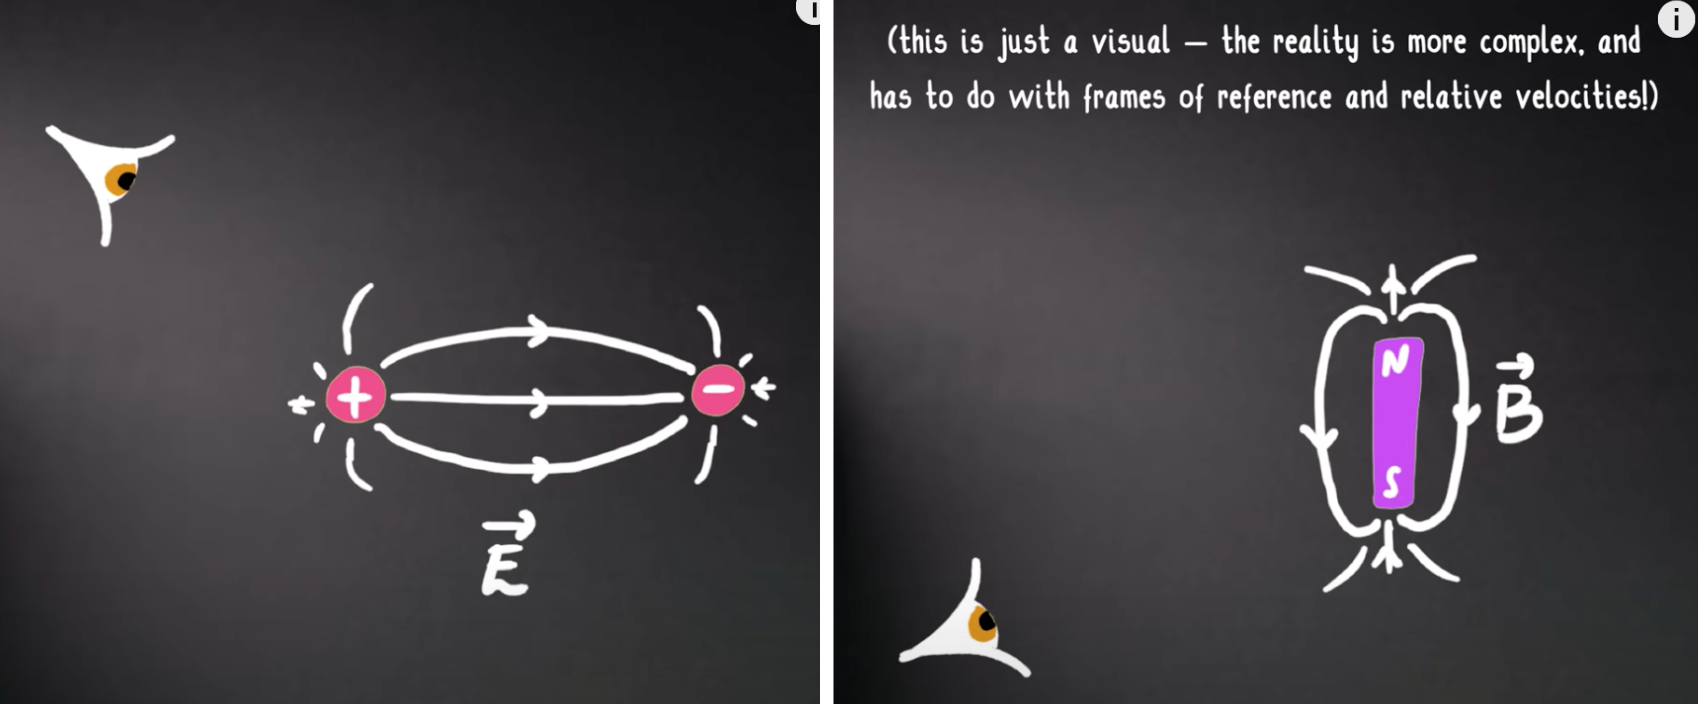 +
-
E
(this is just a visual — the reality is more complex, and
has to do with frames of reference and relative velocities!)
i
N
S
B